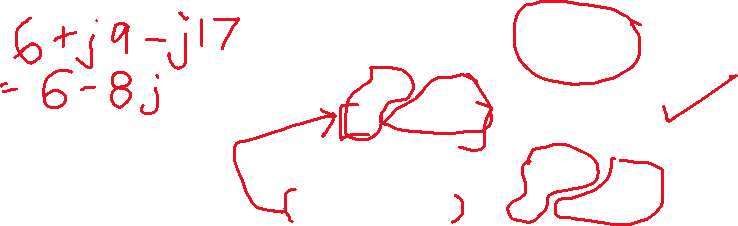 6 + j9 - j17
= 6 - 8j
[ ]
( )